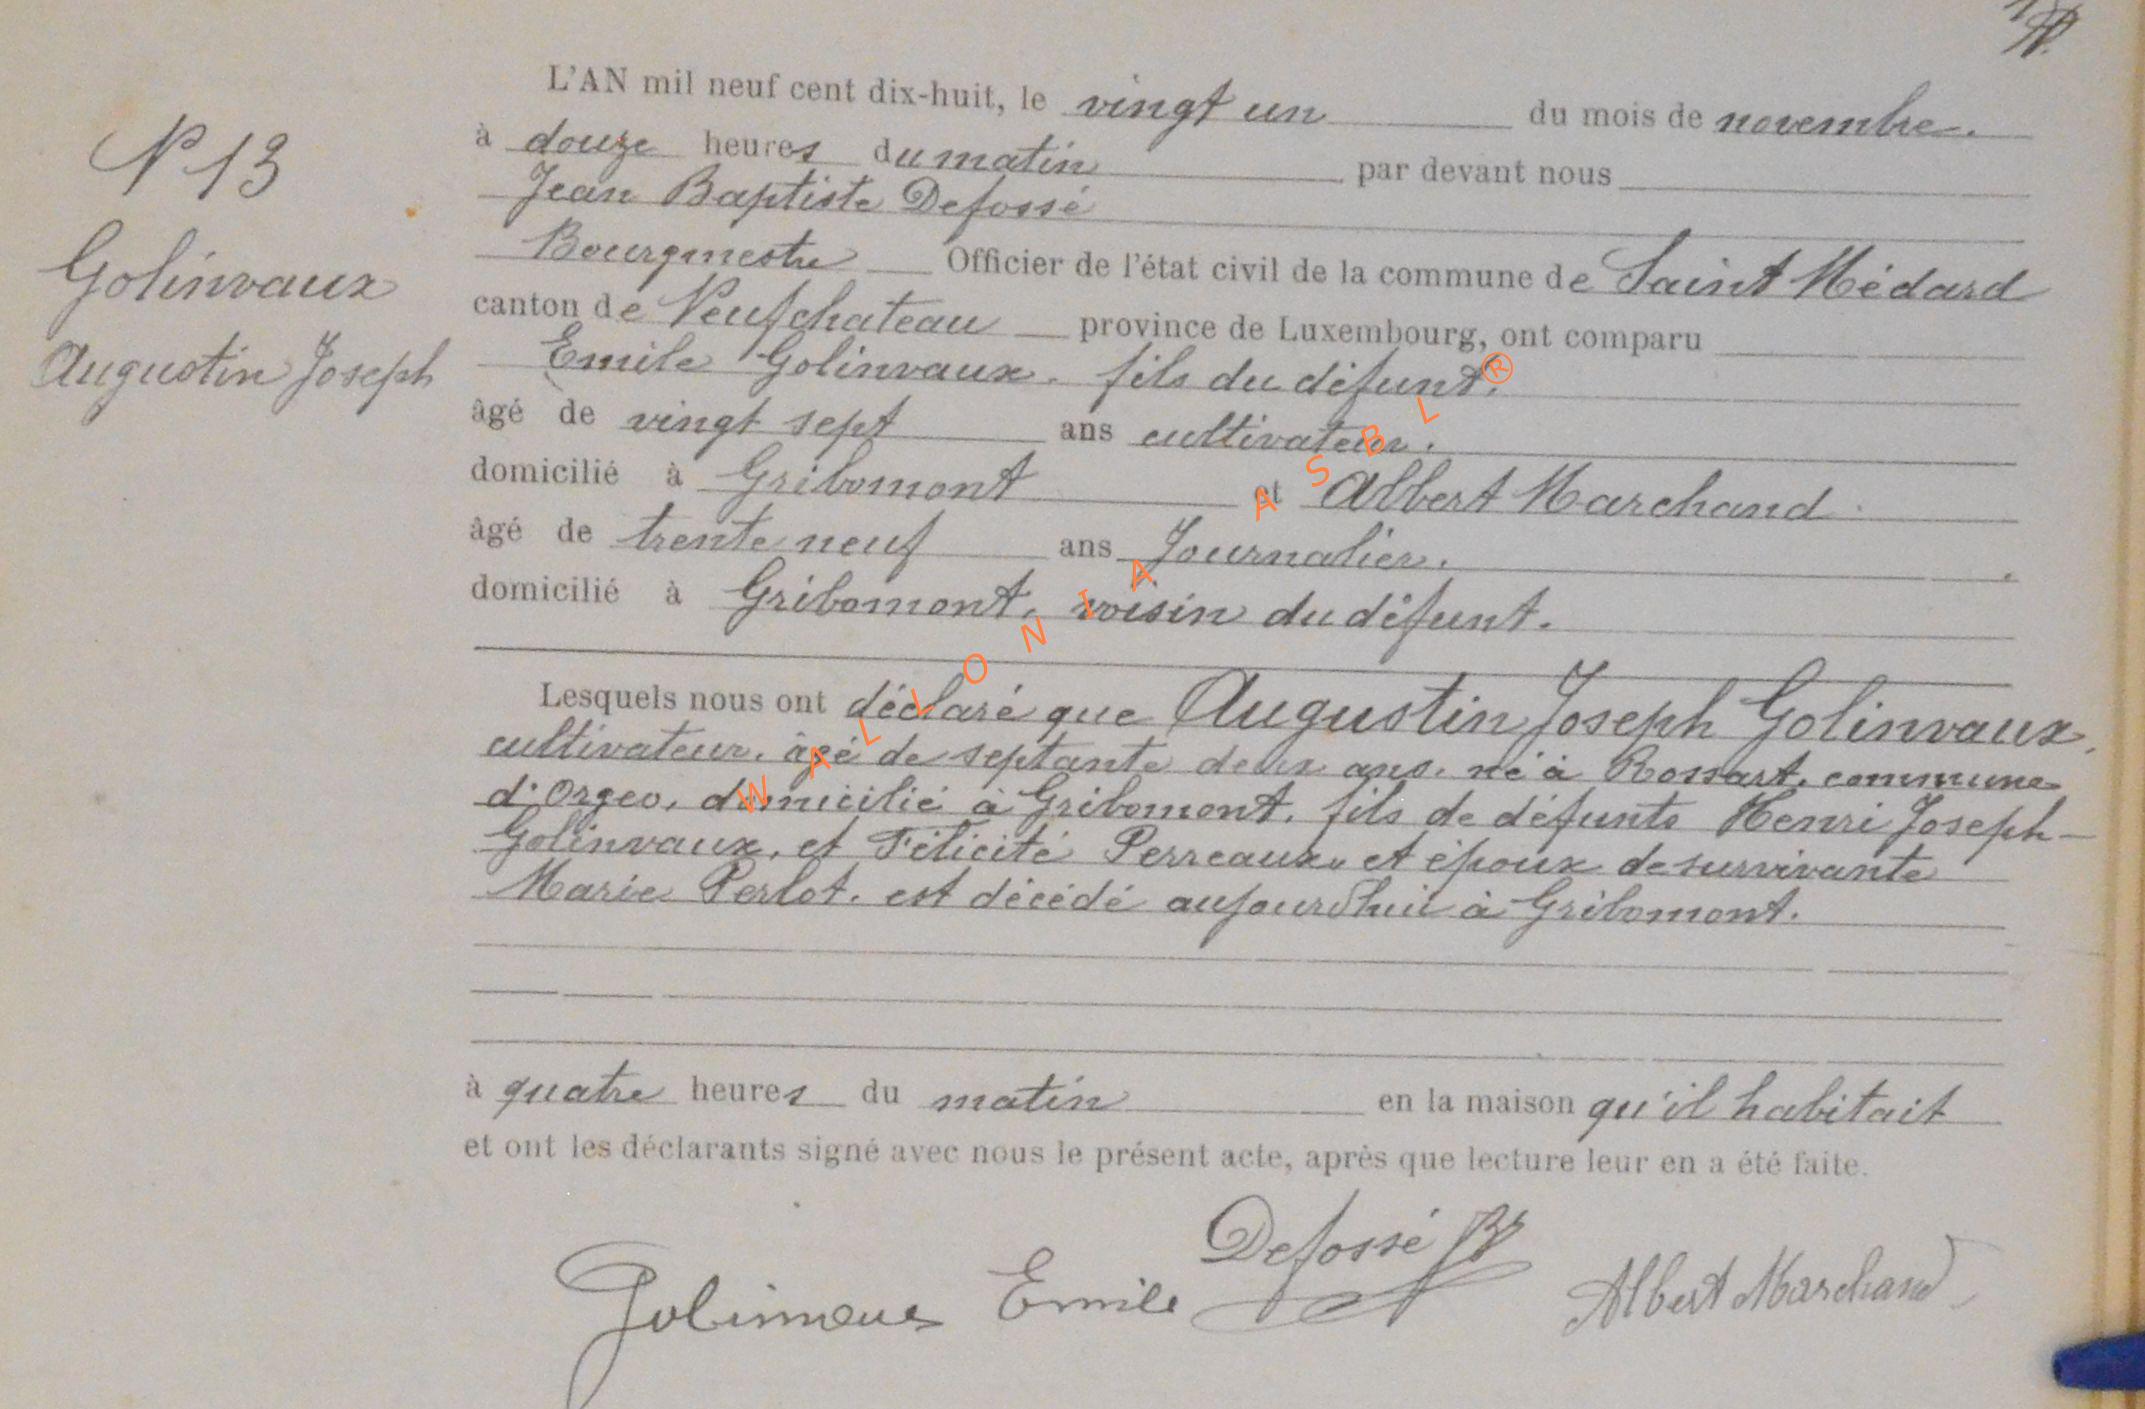 N° 13
Golinvaux
Augustin Joseph
L'AN mil neuf cent dix-huit, le vingt un du mois de novembre.
à douze heures du matin par devant nous
Jean Baptiste Defossé
Bourgmestre Officier de l'état civil de la commune de Saint Médard
canton de Neufchateau province de Luxembourg, ont comparu
Emile Golinvaux. fils du défunt.
âgé de vingt sept ans cultivateur.
domicilié à Gribomont et Albert Marchand
âgé de trente neuf ans Journalier.
domicilié à Gribomont, voisin du défunt.
Lesquels nous ont déclaré que Augustin Joseph Golinvaux,
cultivateur, âgé de septante deux ans, né à Rossart, commune
d'Orgeo, domicilié à Gribomont, fils de défunts Henri Joseph
Golinvaux, et Félicité Perreaux, et époux de survivante
Marie Perlot, est décédé aujourd'hui à Gribomont.
à quatre heures du matin en la maison qu'il habitait
et ont les déclarants signé avec nous le présent acte, après que lecture leur en a été faite.
Defossé JB
Golinvaux Emile Albert Marchand
WALLONIA ASBL ®